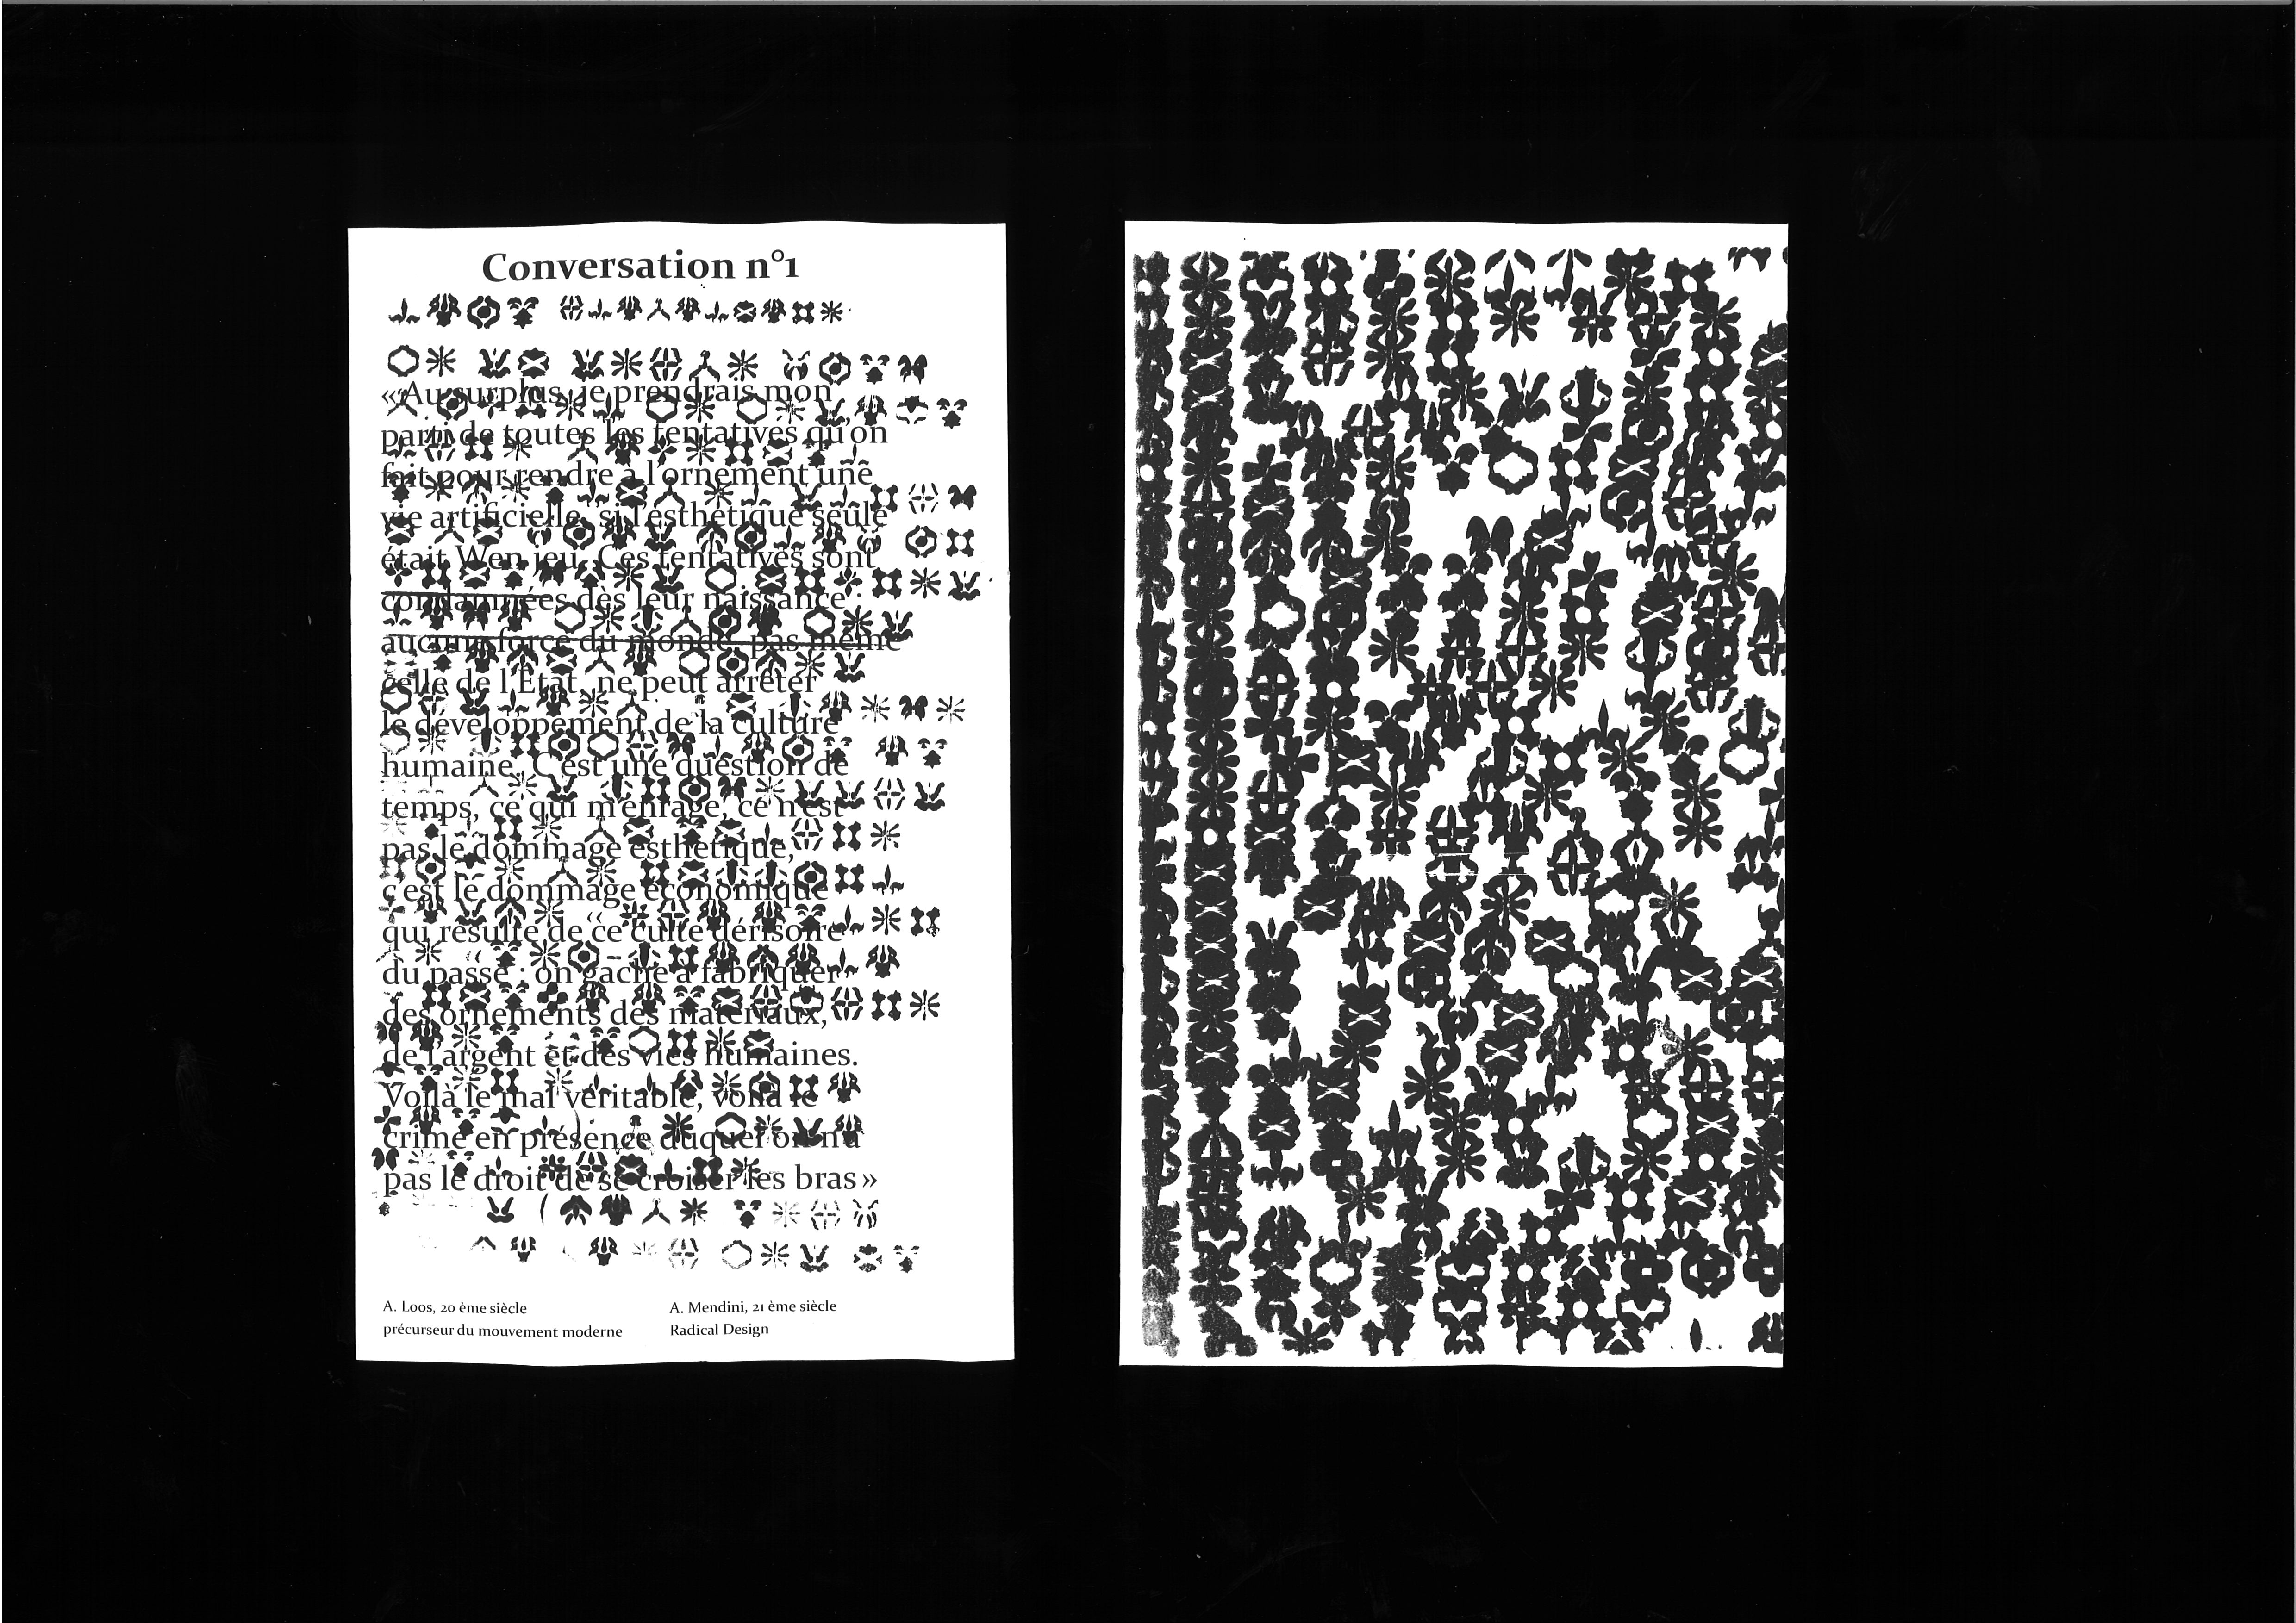 Conversation n°1
«Au surplus, je prendrais mon
parti de toutes les tentatives qu'on
fait pour rendre à l'ornement une
vie artificielle, si l'esthétique seule
était Wen jeu. Ces tentatives sont
condamnées dès leur naissance :
aucune force du monde, pas même
celle de l'État, ne peut arrêter
le développement de la culture
humaine. C'est une question de
temps, ce qui m'enrage, ce n'est
pas le dommage esthétique,
c'est le dommage économique
qui résulte de ce culte dérisoire
du passé : on gache à fabriquer
des ornements des matériaux,
de l'argent et des vies humaines.
Voilà le mal véritable, voilà le
crime en présence duquel on n'a
pas le droit de se croiser les bras»
A. Loos, 20 ème siècle
précurseur du mouvement moderne
A. Mendini, 21 ème siècle
Radical Design